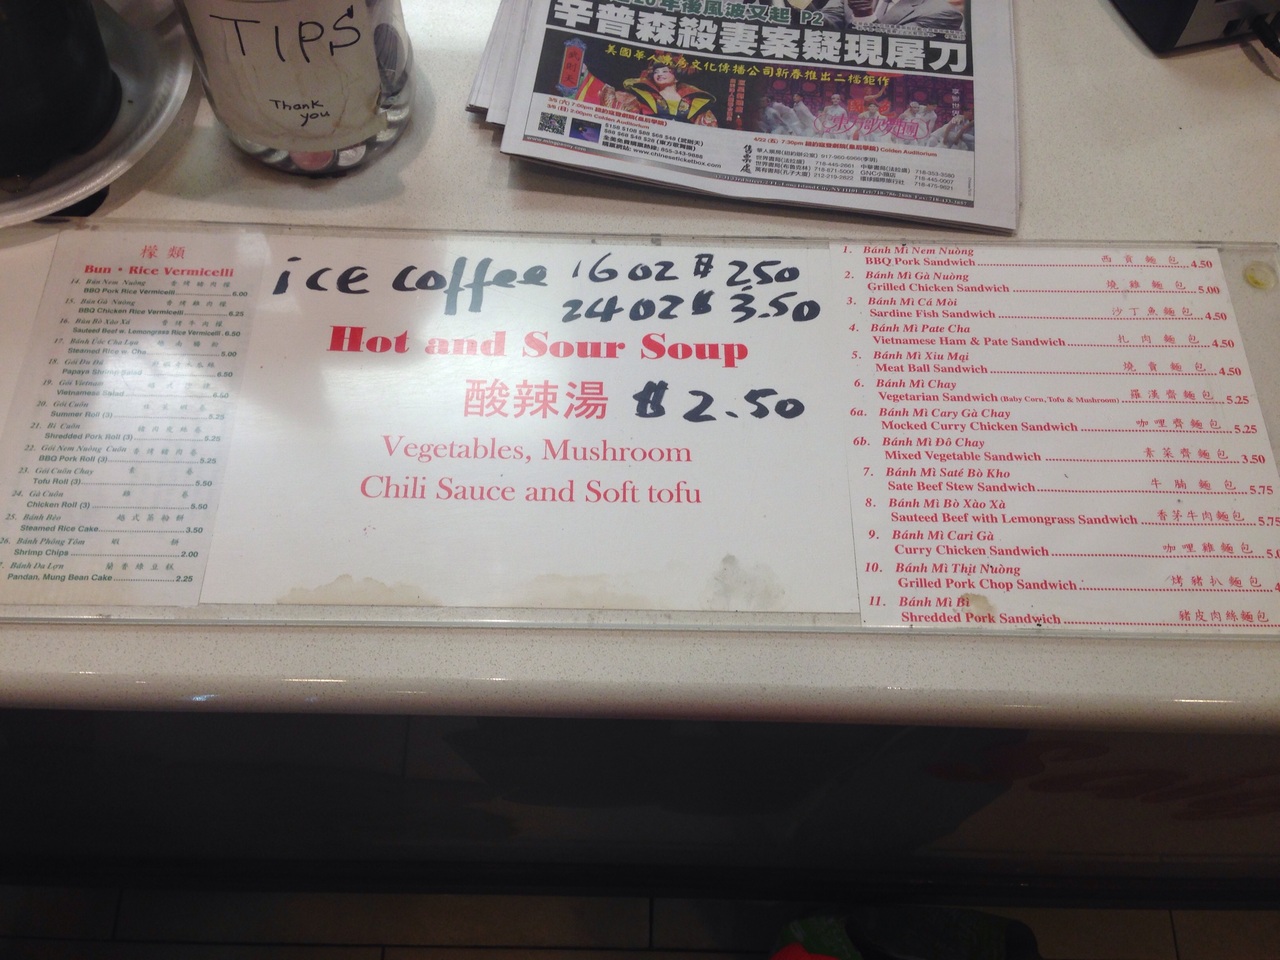 TIPS
Thank
you
年後風波又起 P2
辛普森殺妻案疑現屠刀
美國華人 文化傳播公司新春推出二檔鉅作
Colden Auditorium
www.chineseticketbox.com
售票處
檬類
Bun • Rice Vermicelli
14. Bún Nem Nướng 檬
BBQ Pork Rice Vermicelli 6.00
15. Bún Gà Nướng 檬
BBQ Chicken Rice Vermicelli 6.25
16. Bún Bò Xào Xả 檬
Sauteed Beef w. Lemongrass Rice Vermicelli 6.50
17. Bánh Ước Cha Lụa
Steamed Rice w. Cha 5.00
18. Gỏi Đu Đủ
Papaya Shrimp Salad 6.50
19. Gỏi Vietnam
Vietnamese Salad 6.50
20. Gỏi Cuốn
Summer Roll (3) 5.25
21. Bì Cuốn
Shredded Pork Roll (3) 5.25
22. Gỏi Nem Nướng Cuốn
BBQ Pork Roll (3) 5.25
23. Gỏi Cuốn Chay
Tofu Roll (3) 5.50
24. Gà Cuốn 雞 卷
Chicken Roll (3) 5.50
25. Bánh Bèo 越式蒸粉餅
Steamed Rice Cake 3.50
26. Bánh Phồng Tôm 蝦 餅
Shrimp Chips 2.00
Bánh Da Lợn 蘭香綠豆糕
Pandan, Mung Bean Cake 2.25
ice coffee 16oz $ 2.50
24oz $ 3.50
Hot and Sour Soup
酸辣湯 $ 2.50
Vegetables, Mushroom
Chili Sauce and Soft tofu
1. Bánh Mì Nem Nuòng
BBQ Pork Sandwich 西貢麵包 4.50
2. Bánh Mì Gà Nuóng
Grilled Chicken Sandwich 燒雞麵包 5.00
3. Bánh Mì Cá Mòi
Sardine Fish Sandwich 沙丁魚麵包 4.50
4. Bánh Mì Pate Cha
Vietnamese Ham & Pate Sandwich 扎肉麵包 4.50
5. Bánh Mì Xíu Mại
Meat Ball Sandwich 燒賣麵包 4.50
6. Bánh Mì Chay
Vegetarian Sandwich (Baby Corn, Tofu & Mushroom) 羅漢齋麵包 5.25
6a. Bánh Mì Cary Gà Chay
Mocked Curry Chicken Sandwich 咖哩齋麵包 5.25
6b. Bánh Mì Đô Chay
Mixed Vegetable Sandwich 素菜齋麵包 3.50
7. Bánh Mì Saté Bò Kho
Sate Beef Stew Sandwich 牛腩麵包 5.75
8. Bánh Mì Bò Xào Xà
Sauteed Beef with Lemongrass Sandwich 香茅牛肉麵包 5.75
9. Bánh Mì Cari Gà
Curry Chicken Sandwich 咖哩雞麵包 5.
10. Bánh Mì Thịt Nuòng
Grilled Pork Chop Sandwich 烤豬扒麵包
11. Bánh Mì Bì
Shredded Pork Sandwich 豬皮肉絲麵包